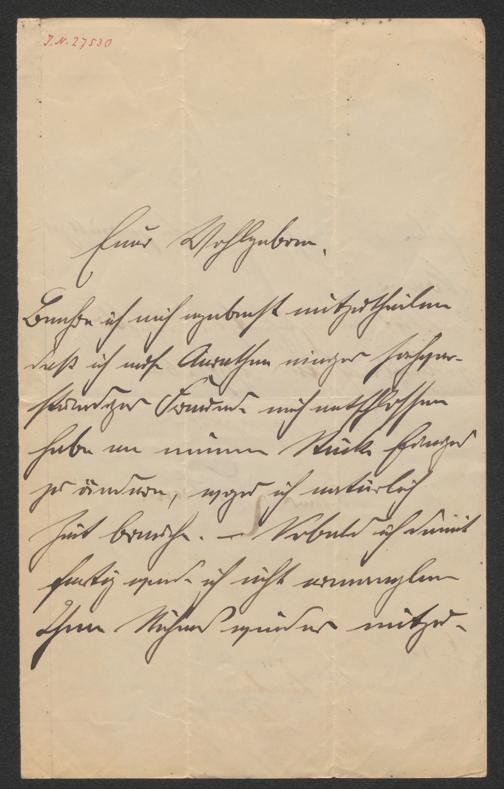 J.N. 27530
Euer Wohlgeboren,
Beehre ich mich ergebenst mitzutheilen
daß ich auf Anrathen einiger sachver-
ständiger Freunde mich entschlossen
habe an meinem Stücke Einiges
zu ändern, wozu ich natürlich
Zeit brauche. — Sobald ich damit
fertig werde ich nicht ermangeln
Ihnen wieder mitzu-